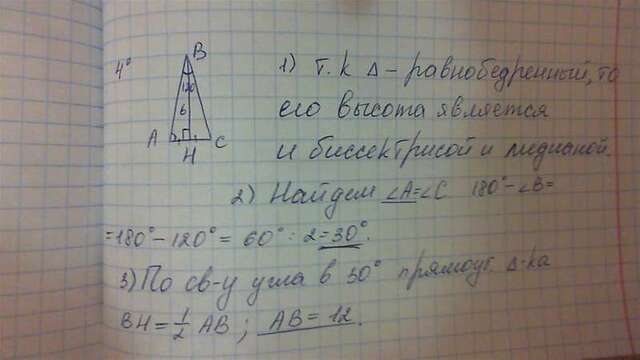 4°
B
120
6
A
H
C
1) Т.к Δ – равнобедренный, то
его высота является
и биссектрисой и медианой.
2) Найдем ∠A=∠C 180°-∠B=
=180°-120°= 60° : 2=30°.
3) По св-у угла в 30° прямоуг. Δ-ка
BH=½ AB ; AB= 12.